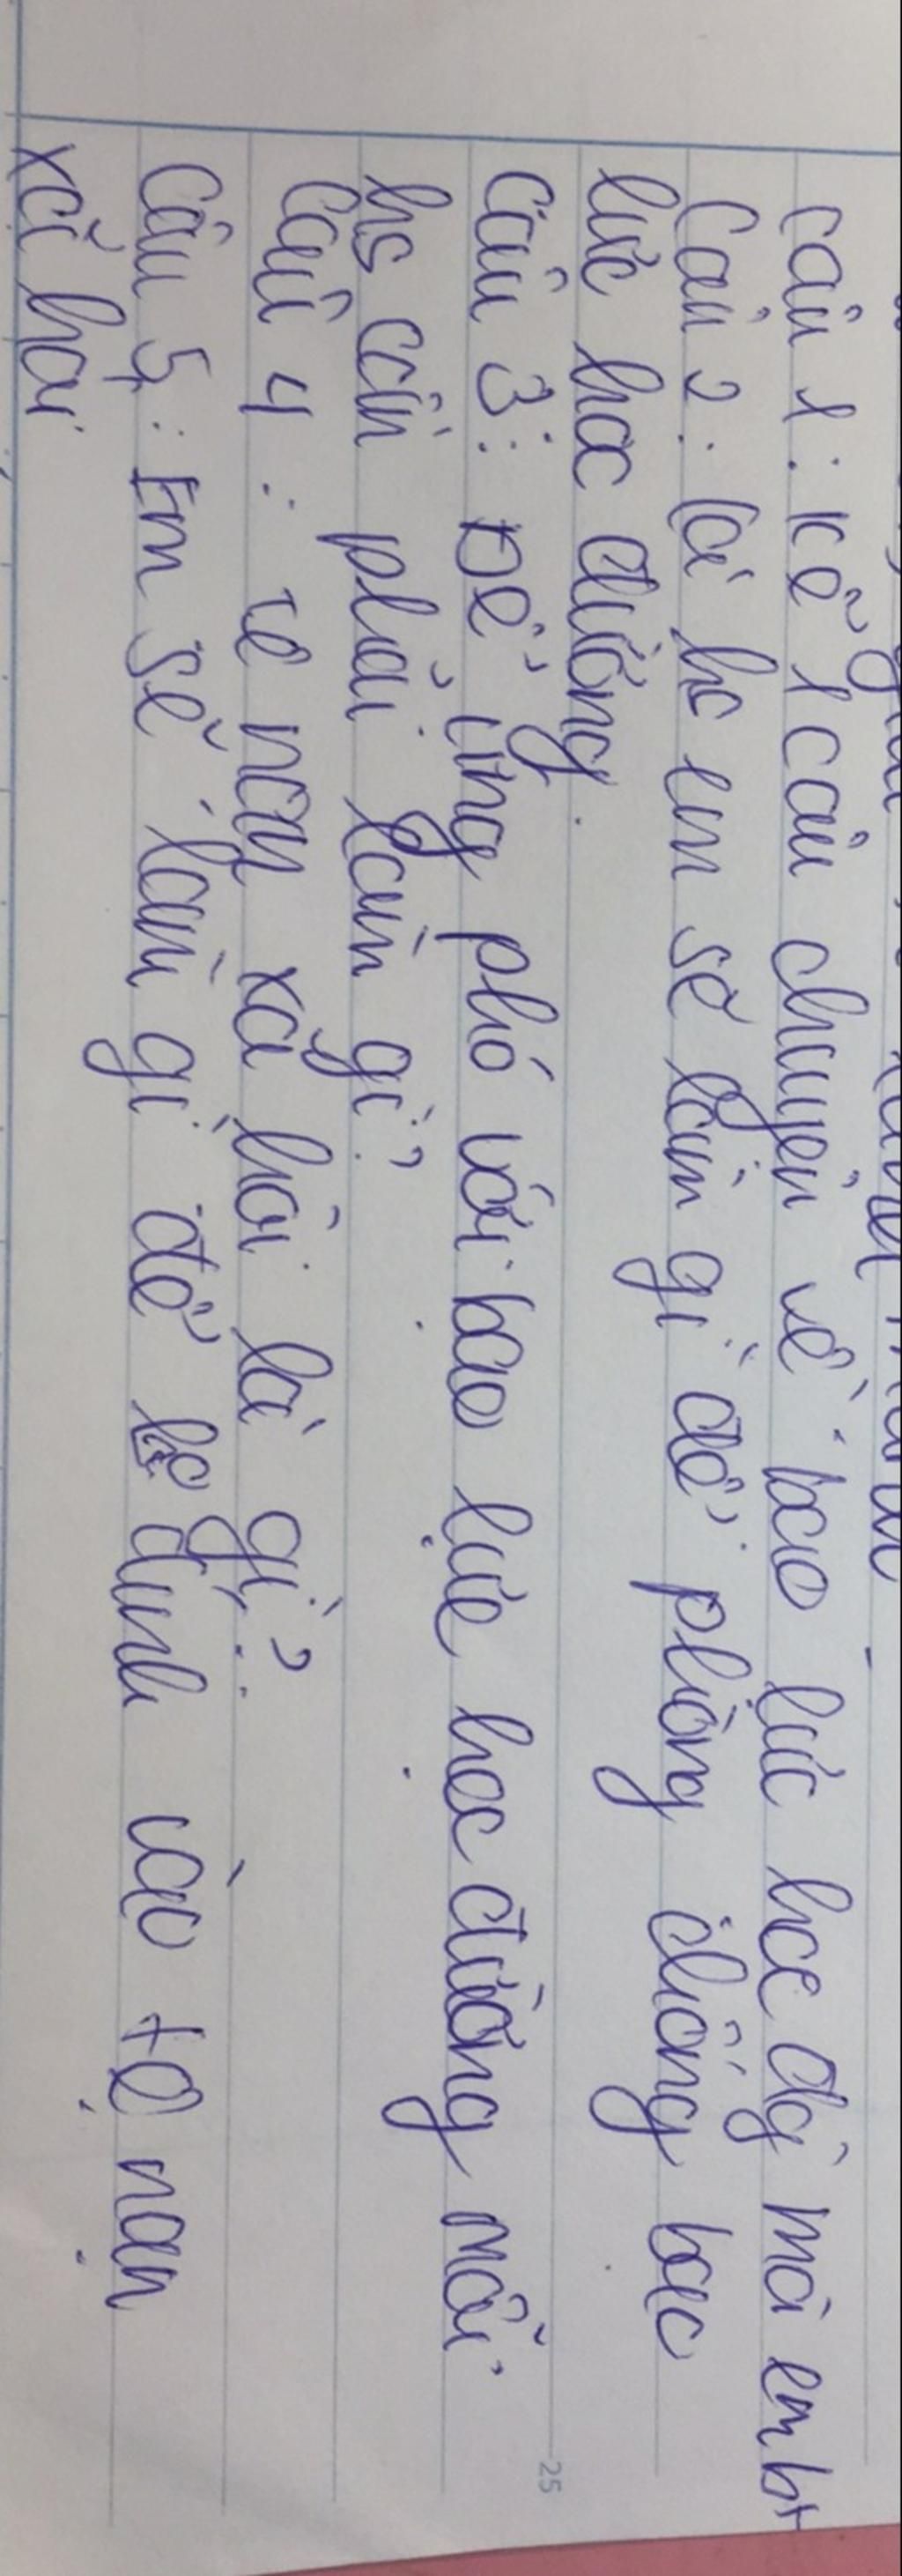 Câu 1 : Kể 1 câu chuyện về bạo lực học đg mà em bt
Câu 2 : là hs em sẽ làm gì để phòng chống bạo
lực học đường.
Câu 3 : Để ứng phó với bạo lực học đường mỗi
hs cần phải làm gì?
Câu 4 : Tệ nạn xã hội là gì?
Câu 5 : Em sẽ làm gì để k dính vào tệ nạn
xã hội
25